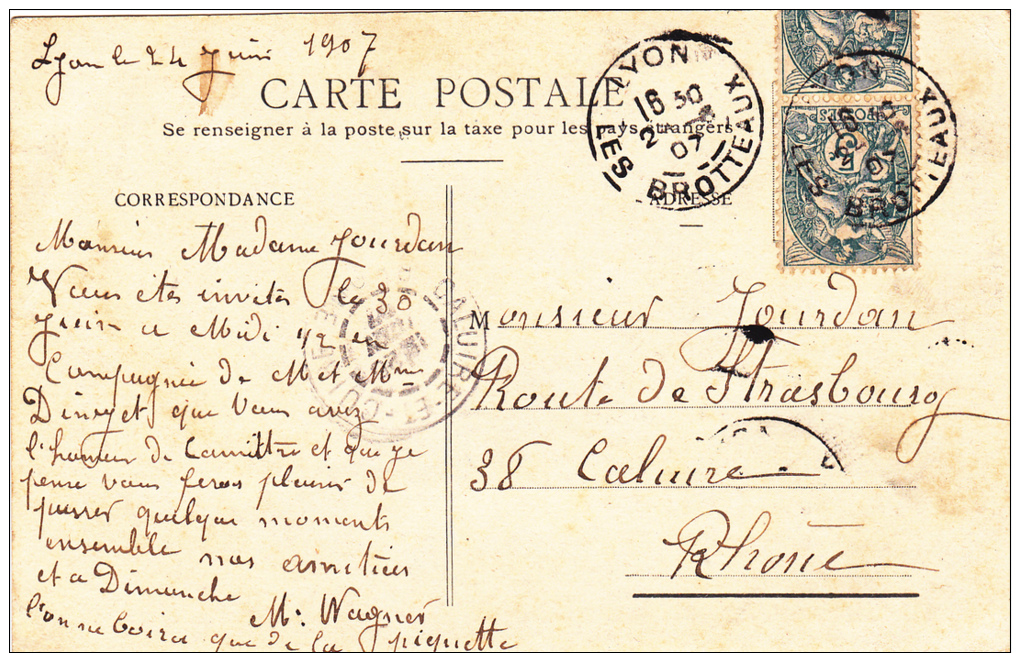 Lyon le 24 Juin 1907
CARTE POSTALE
Se renseigner à la poste sur la taxe pour les pays étrangers
CORRESPONDANCE
ADRESSE
LYON
16 50
2 07
LES BROTTEAUX
LYON
16
07
LES BROTTEAUX
CALUIRE-ET-CUIRE
Monsieur Madame Jourdan
Vous etes invités le 30
Juin a Midi 1/2 en
Compagnie de M et Mme
que vous avez
l'honneur de et que je
pense vous feras plaisir de
passer quelque moments
ensemble nos amitiées
et a Dimanche
M: Wagner
l'on ne boira que de la piquette
Monsieur Jourdan
Route de Strasbourg
38 Caluire
Rhône